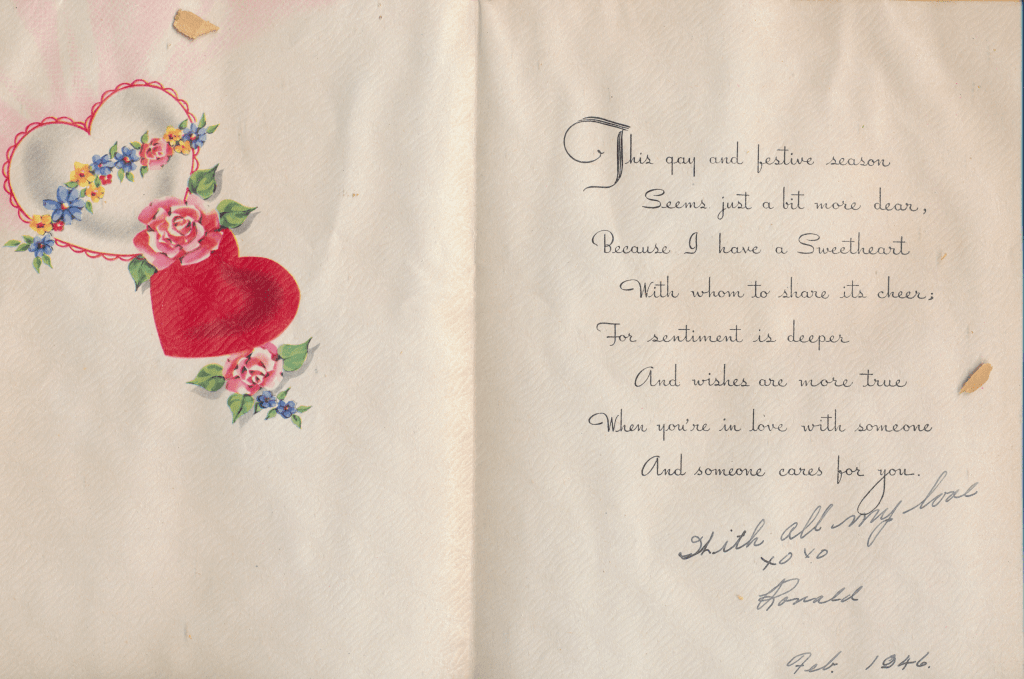 This gay and festive season
Seems just a bit more dear,
Because I have a Sweetheart
With whom to share its cheer;
For sentiment is deeper
And wishes are more true
When you're in love with someone
And someone cares for you.
With all my love
XOXO
Ronald
Feb. 1946.